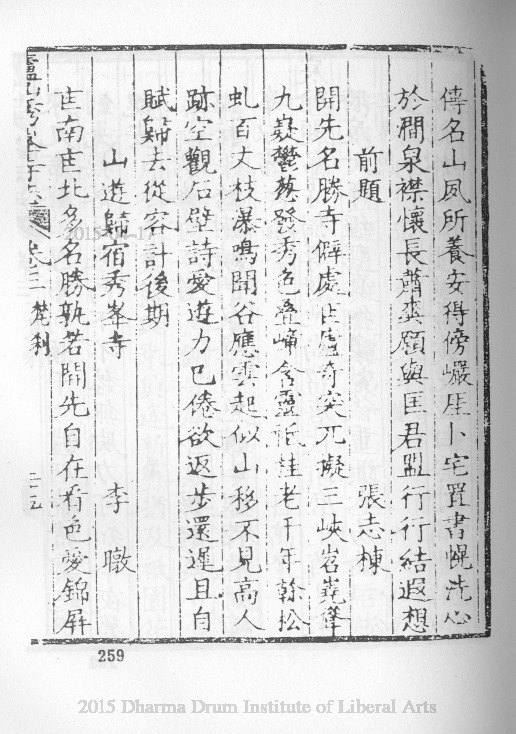 傳名山夙所養安得傍巖居卜宅置書幌洗心
於澗泉襟懷長蕭爽願與匡君盟行行結遐想
前題 張志棟
開先名勝寺僻處占廬奇突兀擬三峽岧嶤豎
九嶷鬱葱發秀色疊嶂含靈 桂老千年幹松
虬百丈枝瀑鳴聞谷應雲起似山移不見高人
跡空觀石壁詩愛遊力已倦欲返步還遲且自
賦歸去從容計後期
山遊歸宿秀峯寺 李暾
寺南寺北多名勝孰若開先自在看色愛錦屏
廬山秀峯寺志 卷二 梵刹 二十五
259
2015 Dharma Drum Institute of Liberal Arts